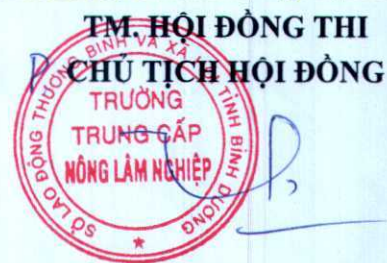 TM. HỘI ĐỒNG THI
P. CHỦ TỊCH HỘI ĐỒNG
SỞ LAO ĐỘNG THƯƠNG BINH VÀ XÃ HỘI TỈNH BÌNH DƯƠNG
TRƯỜNG
TRUNG CẤP
NÔNG LÂM NGHIỆP